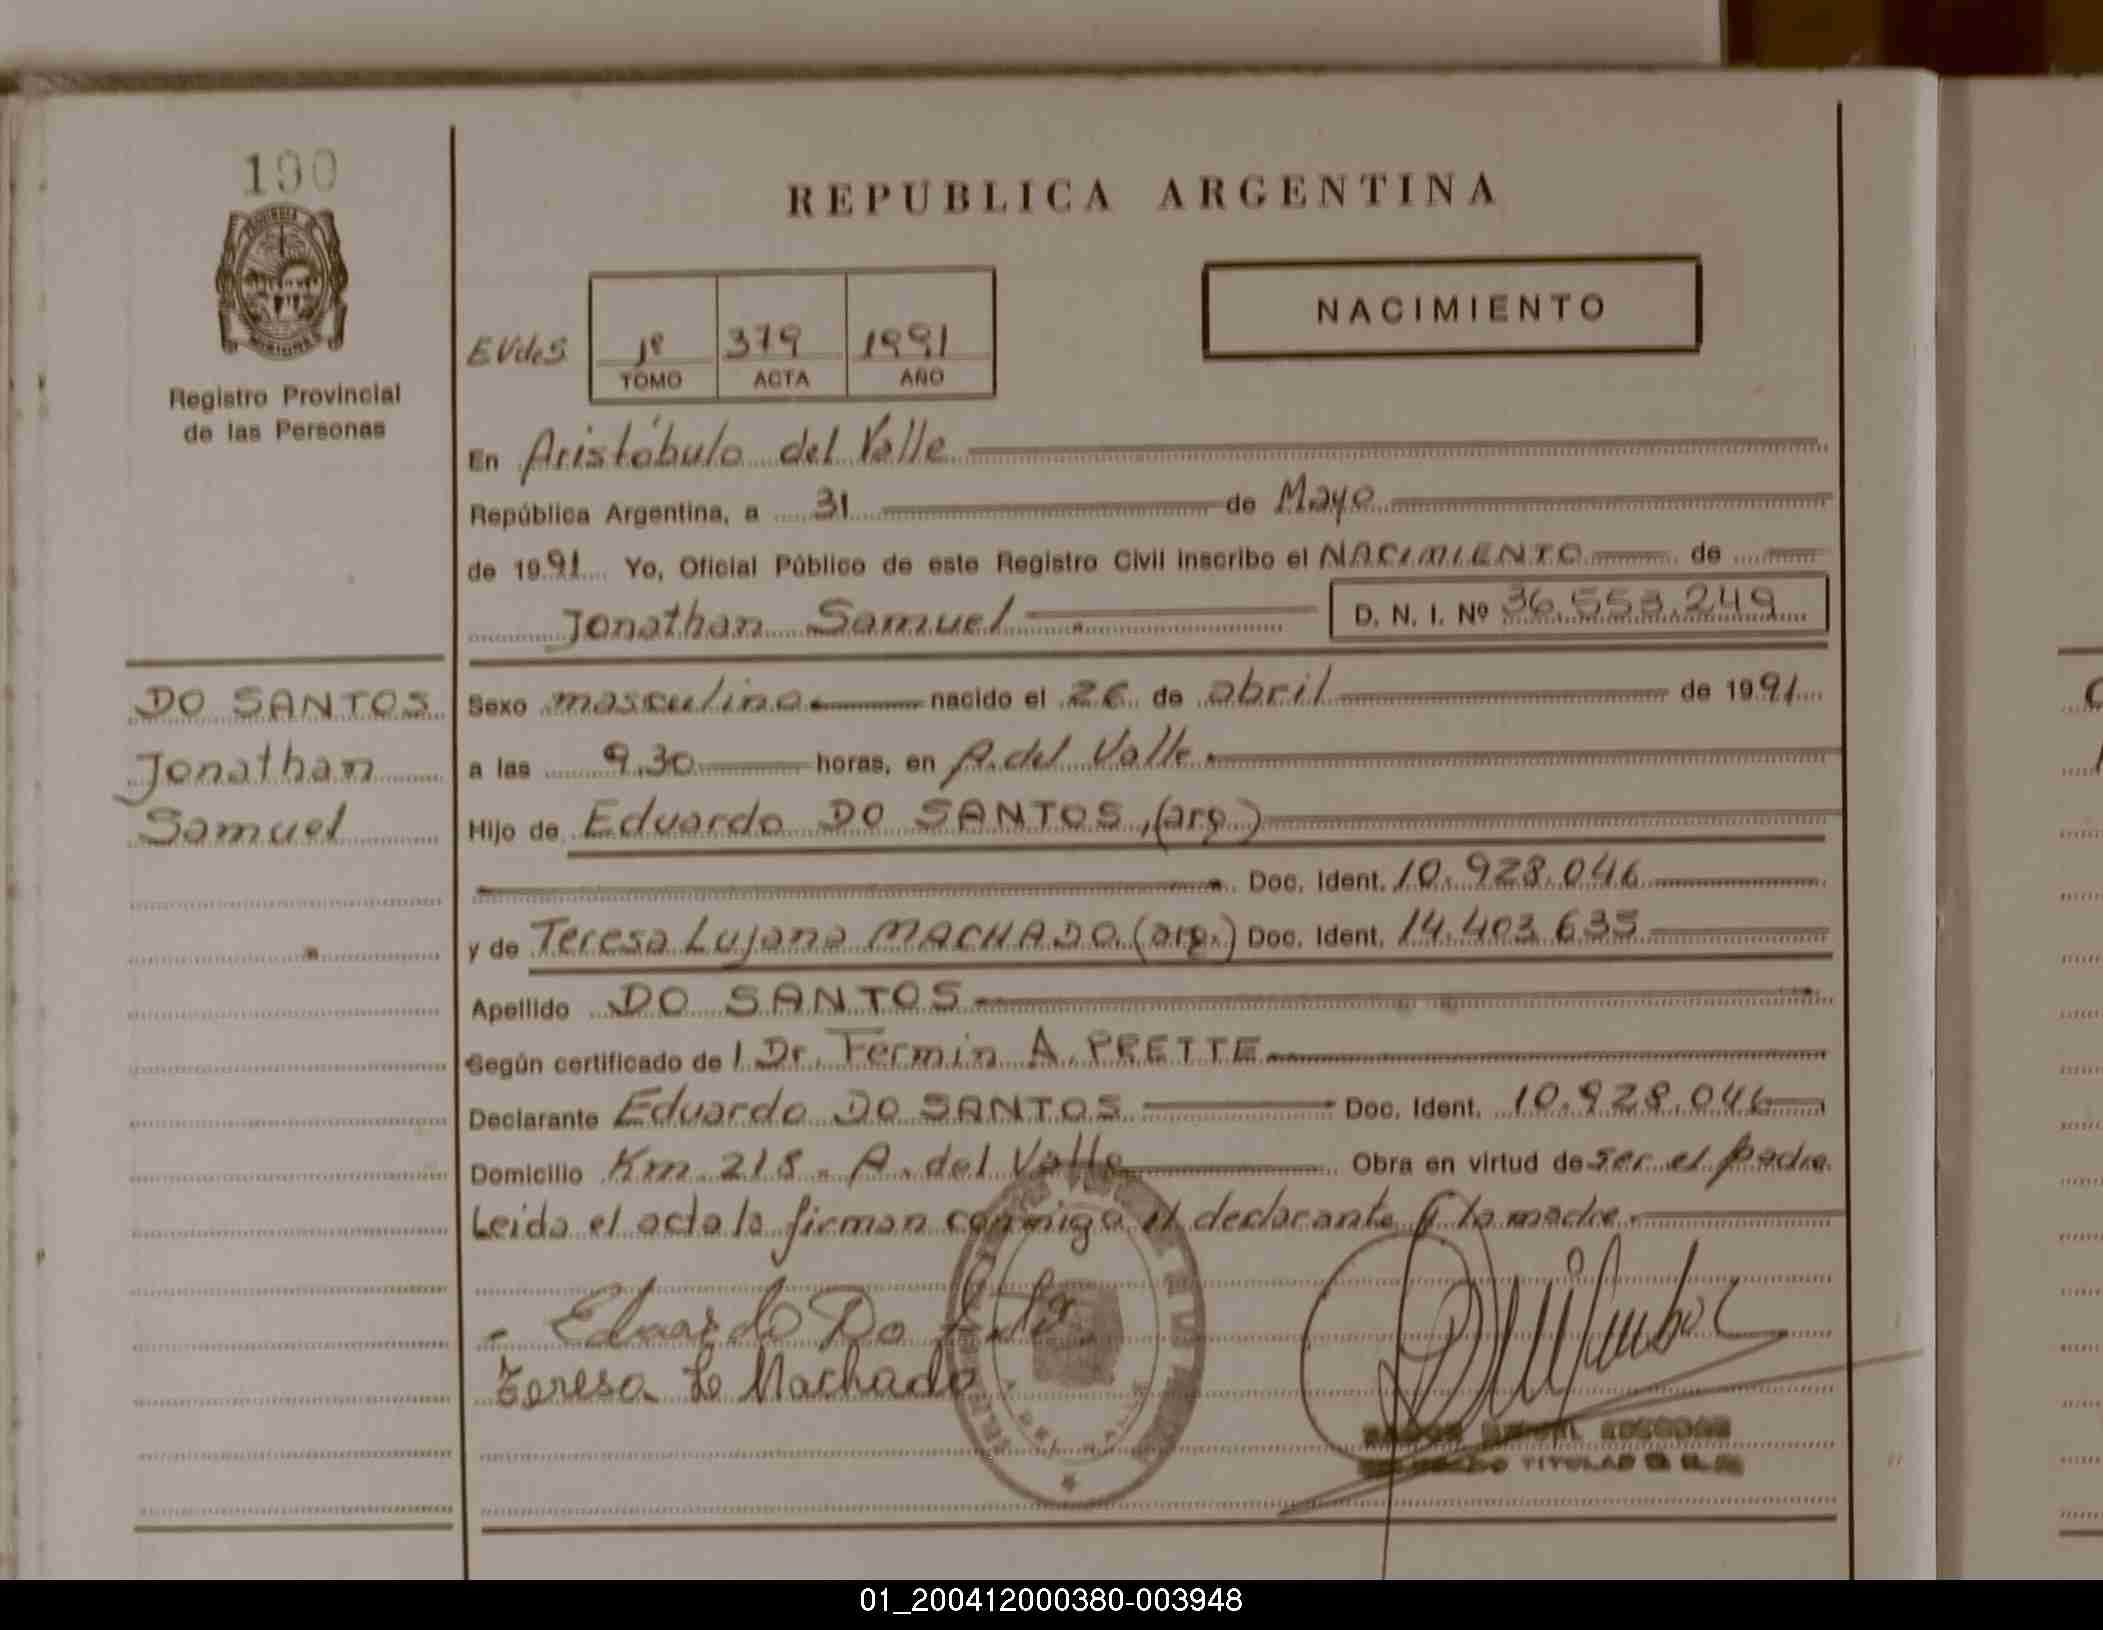 190
Registro Provincial
de las Personas
REPUBLICA ARGENTINA
NACIMIENTO
EVdeS
1º 379 1991
TOMO ACTA AÑO
En Aristóbulo del Valle
República Argentina, a 31 de Mayo
de 1991 Yo, Oficial Público de este Registro Civil inscribo el NACIMIENTO de
Jonathan Samuel D. N. I. Nº 36.553.249
DO SANTOS
Jonathan
Samuel
Sexo masculino nacido el 26 de abril de 1991
a las 9.30 horas, en A. del Valle
Hijo de Eduardo DO SANTOS, (arg.)
Doc. Ident. 10.928.046
y de Teresa Lujana MACHADO (arg.) Doc. Ident. 14.403.635
Apellido DO SANTOS
Según certificado de l Dr. Fermin A. PRETTE
Declarante Eduardo DO SANTOS Doc. Ident. 10.928.046
Domicilio Km 218. A. del Valle Obra en virtud de ser el padre
Leida el acta la firman conmigo el declarante y la madre.
Eduardo Do
Teresa L Machado
TITULAR
01_200412000380-003948